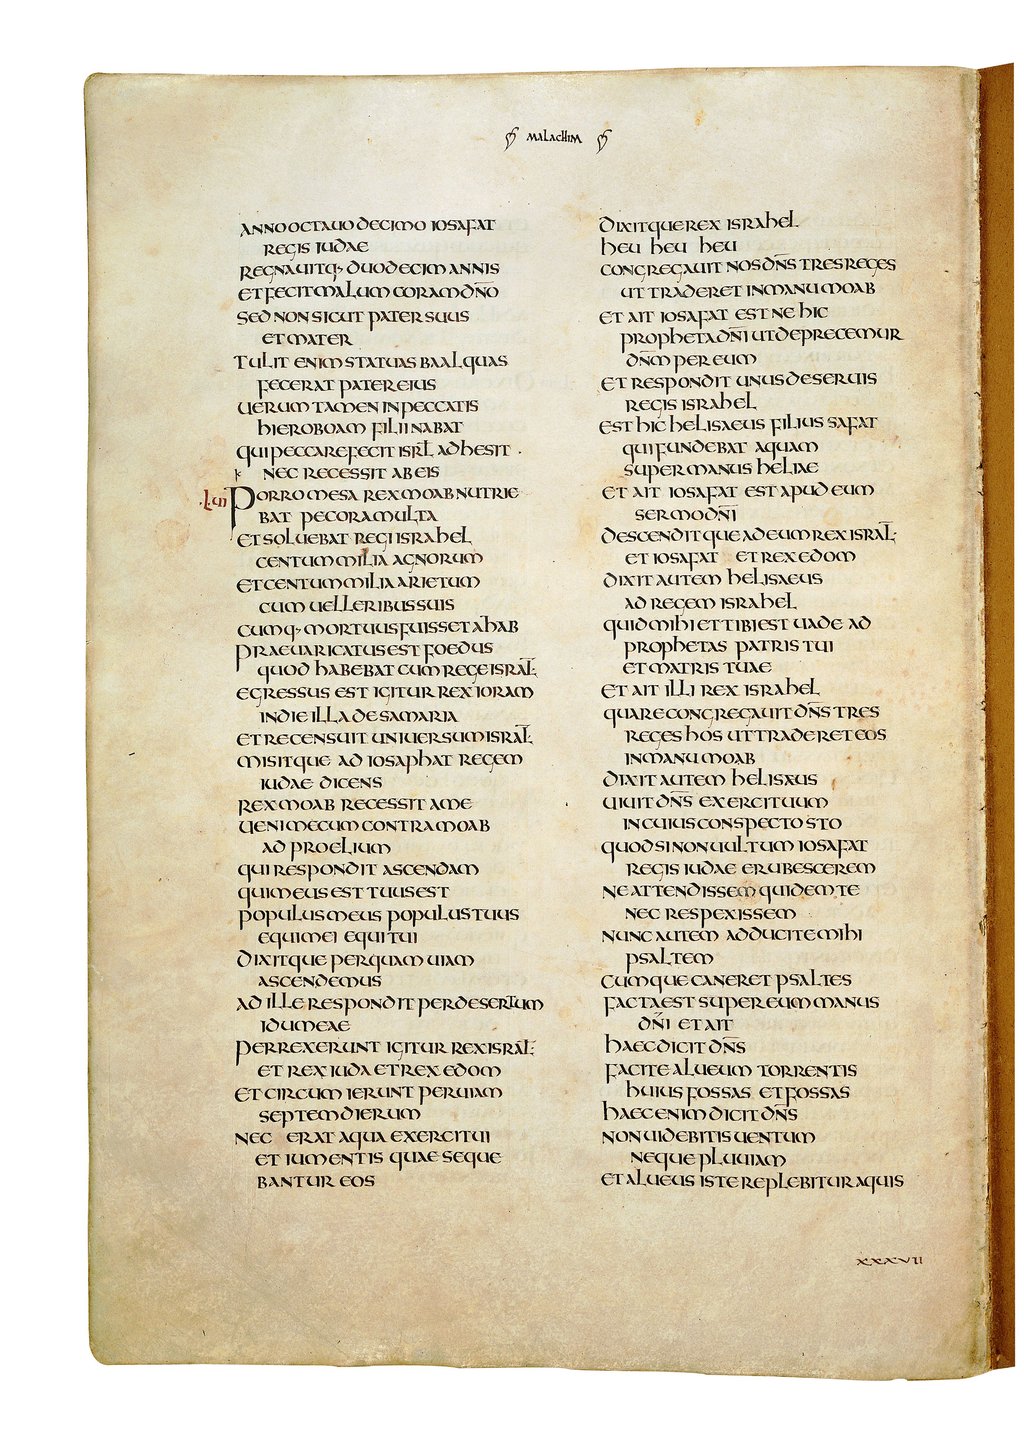 MALACHIM
ANNO OCTAUO DECIMO IOSAFAT
REGIS IUDAE
REGNAUITQ· DUODECIM ANNIS
ET FECIT MALUM CORAM DN̄O
SED NON SICUT PATER SUUS
ET MATER
TULIT ENIM STATUAS BAAL QUAS
FECERAT PATER EIUS
UERUM TAMEN IN PECCATIS
HIEROBOAM FILII NABAT
QUI PECCARE FECIT ISRL̄ ADHESIT ·
NEC RECESSIT AB EIS
·LUI PORRO MESA REX MOAB NUTRIE
BAT PECORA MULTA
ET SOLUEBAT REGI ISRAHEL
CENTUM MILIA AGNORUM
ET CENTUM MILIA ARIETUM
CUM UELLERIBUS SUIS
CUMQ· MORTUUS FUISSET AHAB
PRAEUARICATUS EST FOEDUS
QUOD HABEBAT CUM REGE ISRAL̄
EGRESSUS EST IGITUR REX IORAM
IN DIE ILLA DE SAMARIA
ET RECENSUIT UNIUERSUM ISRAL̄
MISITQUE AD IOSAPHAT REGEM
IUDAE DICENS
REX MOAB RECESSIT A ME
UENI MECUM CONTRA MOAB
AD PROELIUM
QUI RESPONDIT ASCENDAM
QUI MEUS EST TUUS EST
POPULUS MEUS POPULUS TUUS
EQUI MEI EQUI TUI
DIXITQUE PER QUAM UIAM
ASCENDEMUS
AD ILLE RESPONDIT PER DESERTUM
IDUMEAE
PERREXERUNT IGITUR REX ISRAL̄
ET REX IUDA ET REX EDOM
ET CIRCUMIERUNT PER UIAM
SEPTEM DIERUM
NEC ERAT AQUA EXERCITUI
ET IUMENTIS QUAE SEQUE
BANTUR EOS
DIXITQUE REX ISRAHEL
HEU HEU HEU
CONGREGAUIT NOS DN̄S TRES REGES
UT TRADERET IN MANU MOAB
ET AIT IOSAFAT EST NE HIC
PROPHETA DN̄I UT DEPRECEMUR
DN̄M PER EUM
ET RESPONDIT UNUS DE SERUIS
REGIS ISRAHEL
EST HIC HELISAEUS FILIUS SAFAT
QUI FUNDEBAT AQUAM
SUPER MANUS HELIAE
ET AIT IOSAFAT EST APUD EUM
SERMO DN̄I
DESCENDITQUE AD EUM REX ISRAL̄
ET IOSAFAT ET REX EDOM
DIXIT AUTEM HELISAEUS
AD REGEM ISRAHEL
QUID MIHI ET TIBI EST UADE AD
PROPHETAS PATRIS TUI
ET MATRIS TUAE
ET AIT ILLI REX ISRAHEL
QUARE CONGREGAUIT DN̄S TRES
REGES HOS UT TRADERET EOS
IN MANU MOAB
DIXIT AUTEM HELISAEUS
UIUIT DN̄S EXERCITUUM
IN CUIUS CONSPECTO STO
QUOD SI NON UULTUM IOSAFAT
REGIS IUDAE ERUBESCEREM
NE ATTENDISSEM QUIDEM TE
NEC RESPEXISSEM
NUNC AUTEM ADDUCITE MIHI
PSALTEM
CUMQUE CANERET PSALTES
FACTA EST SUPER EUM MANUS
DN̄I ET AIT
HAEC DICIT DN̄S
FACITE ALUEUM TORRENTIS
HUIUS FOSSAS ET FOSSAS
HAEC ENIM DICIT DN̄S
NON UIDEBITIS UENTUM
NEQUE PLUUIAM
ET ALUEUS ISTE REPLEBITUR AQUIS
XXXVII